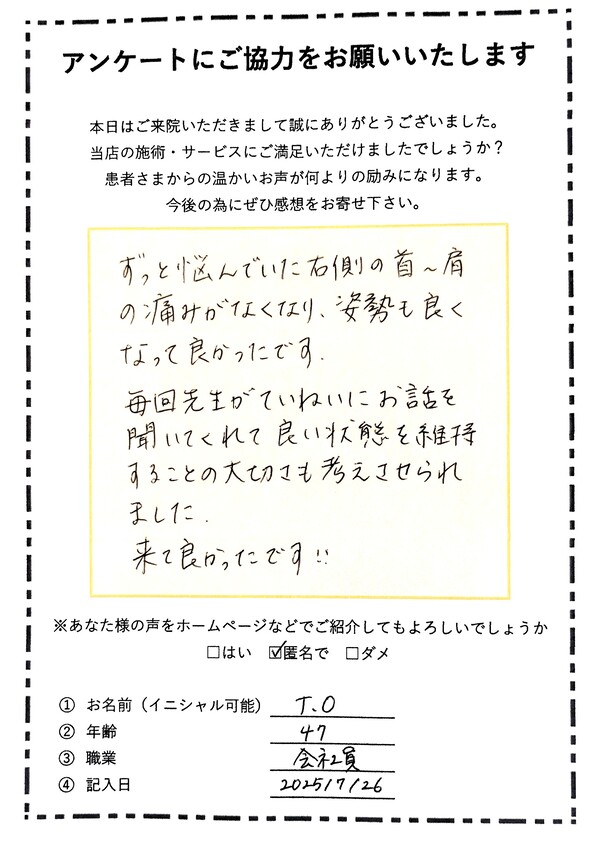 アンケートにご協力をお願いいたします
本日はご来院いただきまして誠にありがとうございました。
当店の施術・サービスにご満足いただけましたでしょうか？
患者さまからの温かいお声が何よりの励みになります。
今後の為にぜひ感想をお寄せ下さい。
ずっと悩んでいた右側の首～肩
の痛みがなくなり、姿勢も良く
なって良かったです.
毎回先生がていねいにお話を
聞いてくれて良い状態を維持
することの大切さも考えさせられ
ました.
来て良かったです!!
※あなた様の声をホームページなどでご紹介してもよろしいでしょうか
□はい ☑匿名で □ダメ
① お名前（イニシャル可能） T.O
② 年齢 47
③ 職業 会社員
④ 記入日 2025/7/26